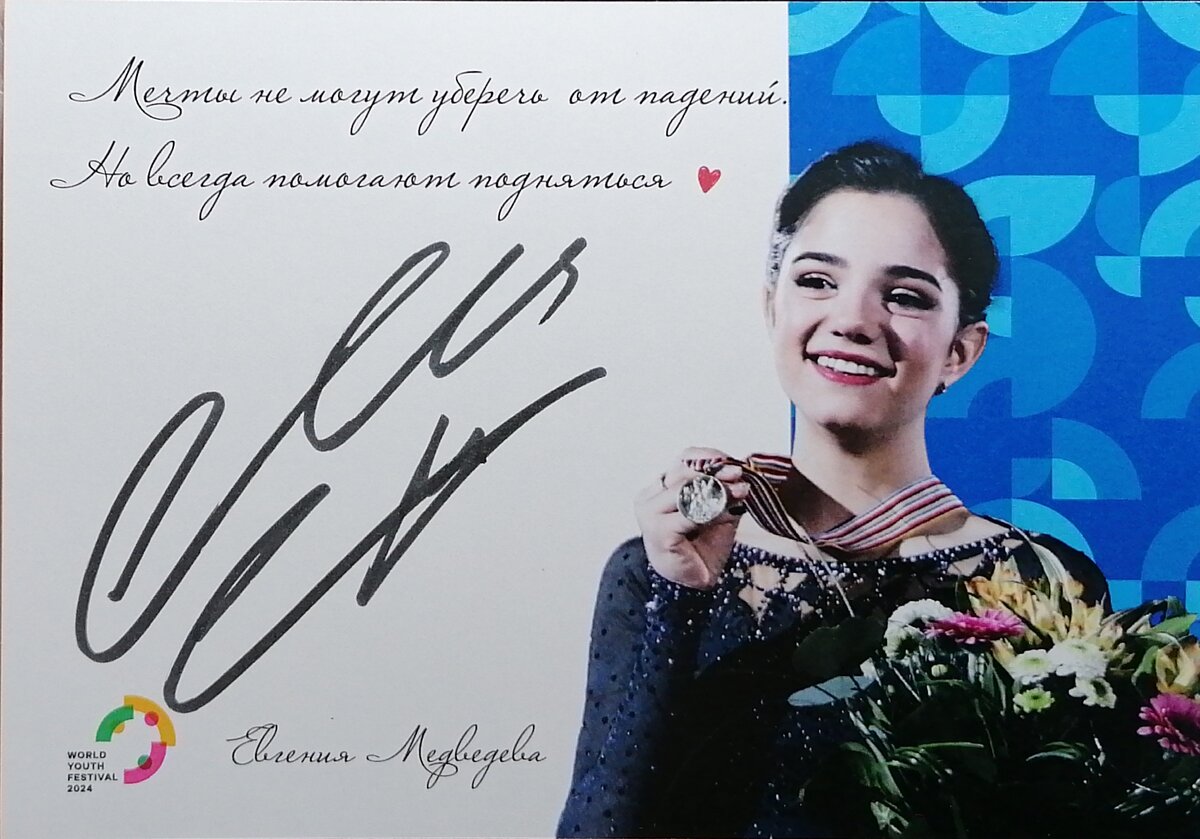 Мечты не могут уберечь от падений.
Но всегда помогают подняться
WORLD
YOUTH
FESTIVAL
2024
Евгения Медведева